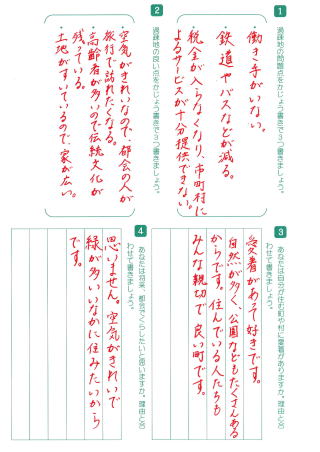 1
過疎地の問題点をかじょう書きで3つ書きましょう。
・働き手がいない。
・鉄道やバスなどが減る。
・税金が入らなくなり、市町村に
よるサービスが十分提供できない。
2
過疎地の良い点をかじょう書きで3つ書きましょう。
・空気がきれいなので、都会の人が
旅行で訪れたくなる。
・高齢者が多いので伝統文化が
残っている。
・土地がすいているので、家が広い。
3
あなたは自分が住む町や村に愛着がありますか。理由と合
わせて書きましょう。
愛着があって好きです。
自然が多く、公園などもたくさんある
からです。住んでいる人たちも
みんな親切で良い町です。
4
あなたは将来、都会でくらしたいと思いますか。理由と合
わせて書きましょう。
思いません。空気がきれいで
緑が多いいなかに住みたいから
です。